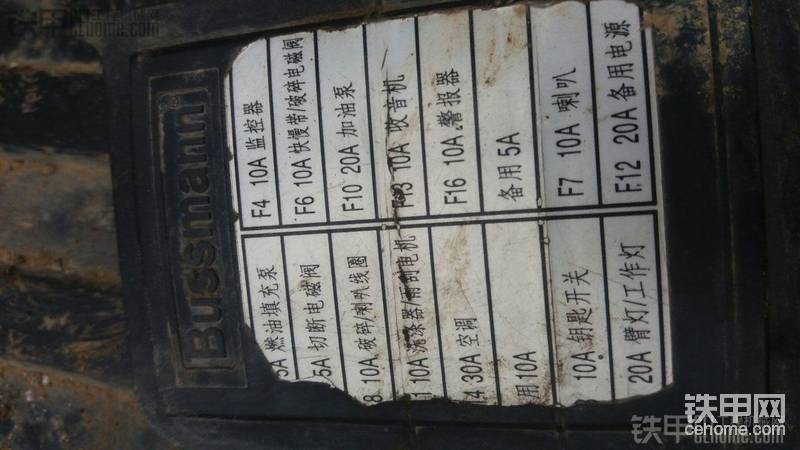 Bussmann®
F4 10A 监控器
F6 10A 快慢带/破碎电磁阀
F10 20A 加油泵
F13 10A 收音机
F16 10A 警报器
备用 5A
F7 10A 喇叭
F12 20A 备用电源
5A 燃油填充泵
5A 切断电磁阀
8 10A 破碎/喇叭线圈
1 10A 洗涤器/雨刮电机
4 30A 空调
用 10A
10A 钥匙开关
20A 臂灯/工作灯
铁甲网
cehome.com
铁甲
cehome.com
铁甲
cehome.com
铁甲
cehome.com